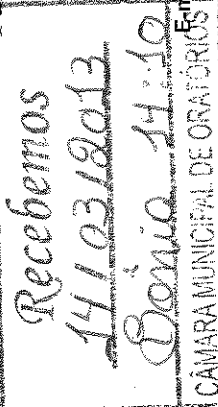 Recebemos
14/03/2013
Sônia 14:10
CÂMARA MUNICIPAL DE ORATÓRIOS
E-m